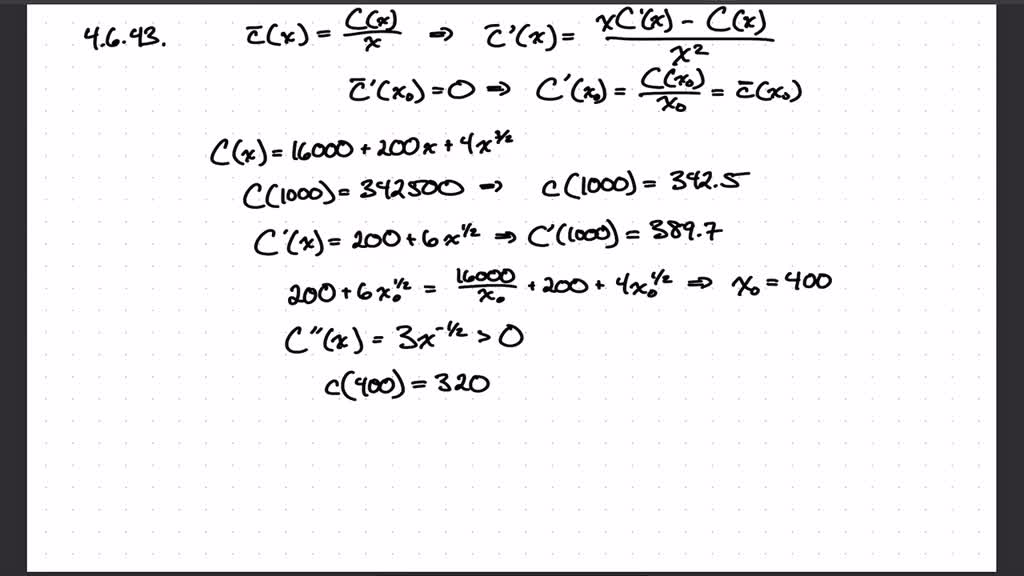 4.6.43. c̄(x) = C(x)/x ⇒ c̄'(x) = (xC'(x) - C(x))/x²
c̄'(x₀) = 0 ⇒ C'(x₀) = C(x₀)/x₀ = c̄(x₀)
C(x) = 16000 + 200x + 4x^(3/2)
C(1000) = 342500 ⇒ c(1000) = 342.5
C'(x) = 200 + 6x^(1/2) ⇒ C'(1000) = 389.7
200 + 6x₀^(1/2) = 16000/x₀ + 200 + 4x₀^(1/2) ⇒ x₀ = 400
C''(x) = 3x^(-1/2) > 0
c(400) = 320